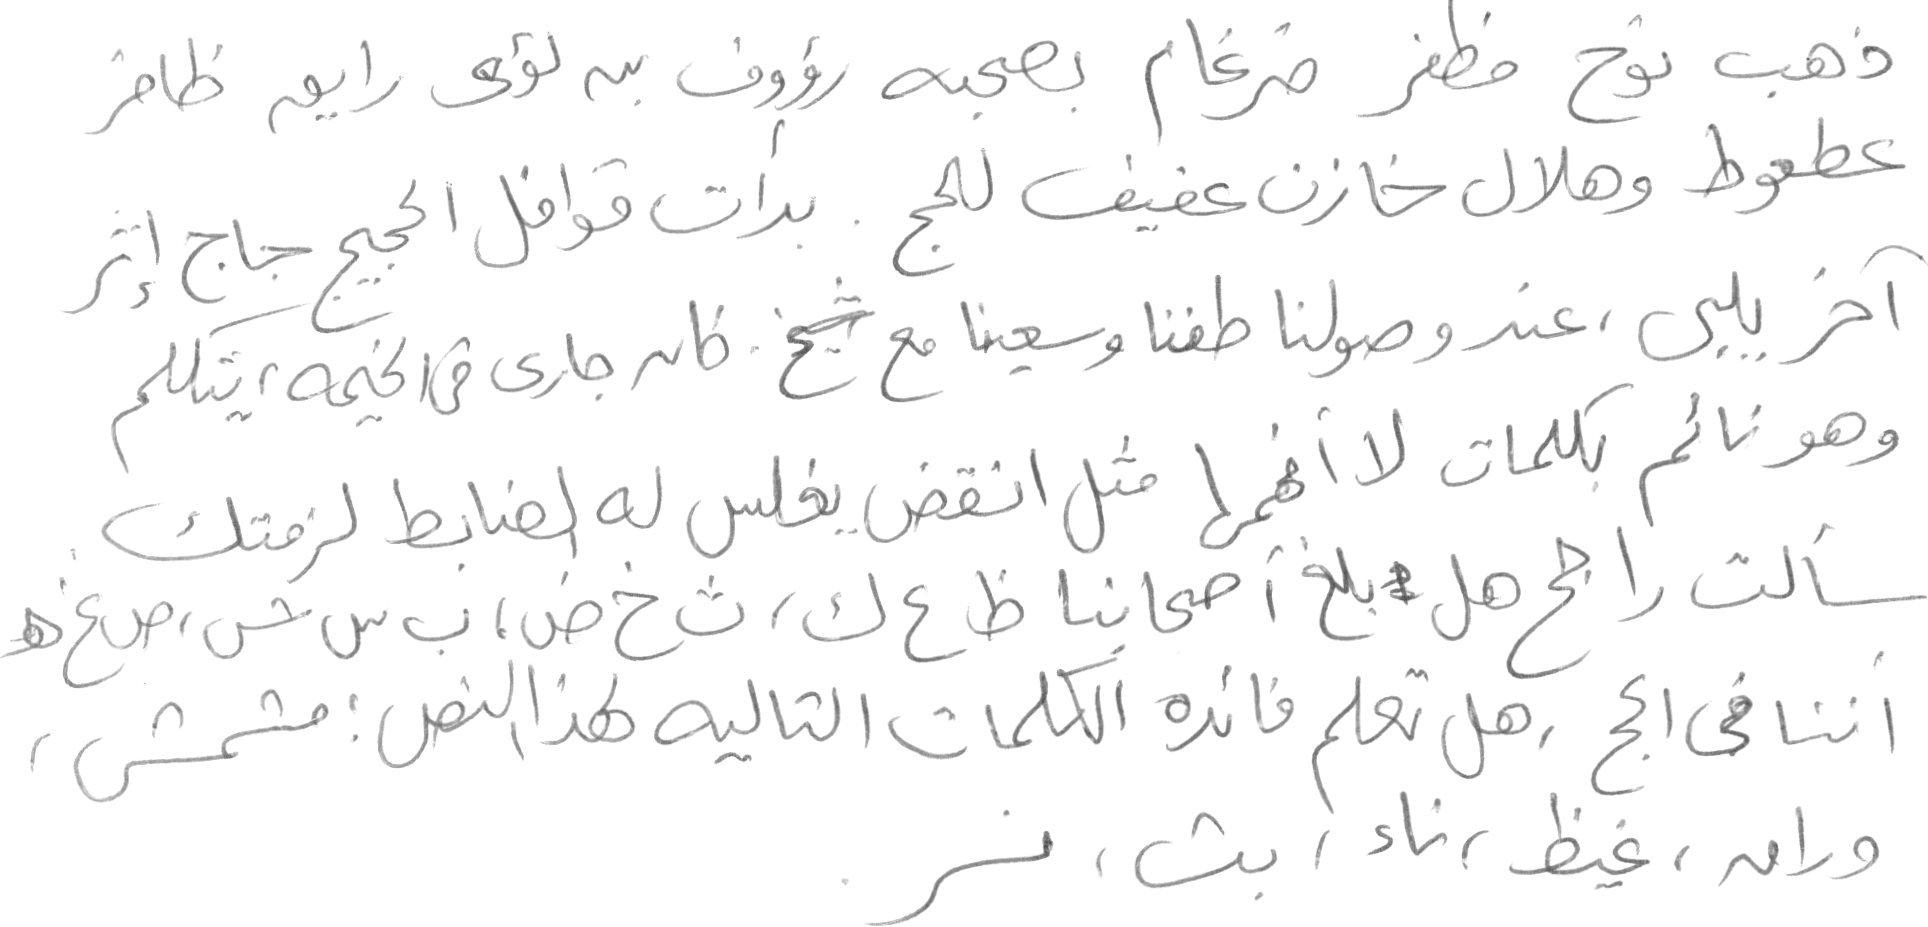 ذهب نوح مظفر ضرغام بصحبه رؤوف بن لؤى رايق ظافر
عطعوط وهلال خازن عفيف للحج . بدأت قوافل الحجيج حاج إثر
آخر يلبى ، عند وصولنا طفنا وسعينا مع شيخ . كان جارى فى الخيمه ، يتكلم
وهو نائم بكلمات لا أفهمها مثل انقض يغلس له الضابط لزمتك .
سألت راجح هل بلغ أصحابنا ظ ع ك ، ث خ ض ، ب س ش ، ص غ ذ ه
أننا فى الحج ، هل تعلم فائده الكلمات التاليه لهذا النص : مشمش ،
ورامه ، غيظ ، ناء ، بث ، نسر .